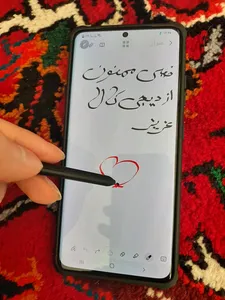 خیلی ممنون
از دیجی کالا
عزیز